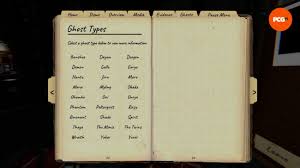 Home Overview Media Evidence Ghosts Pause Menu
PCG
Ghost Types
Select a ghost type below to see more information
Banshee Dayan Deogen
Demon Gallu Goryo
Hantu Jinn Mare
Moroi Myling Obake
Obambo Oni Onryo
Phantom Poltergeist Raiju
Revenant Shade Spirit
Thaye The Mimic The Twins
Wraith Yokai Yurei